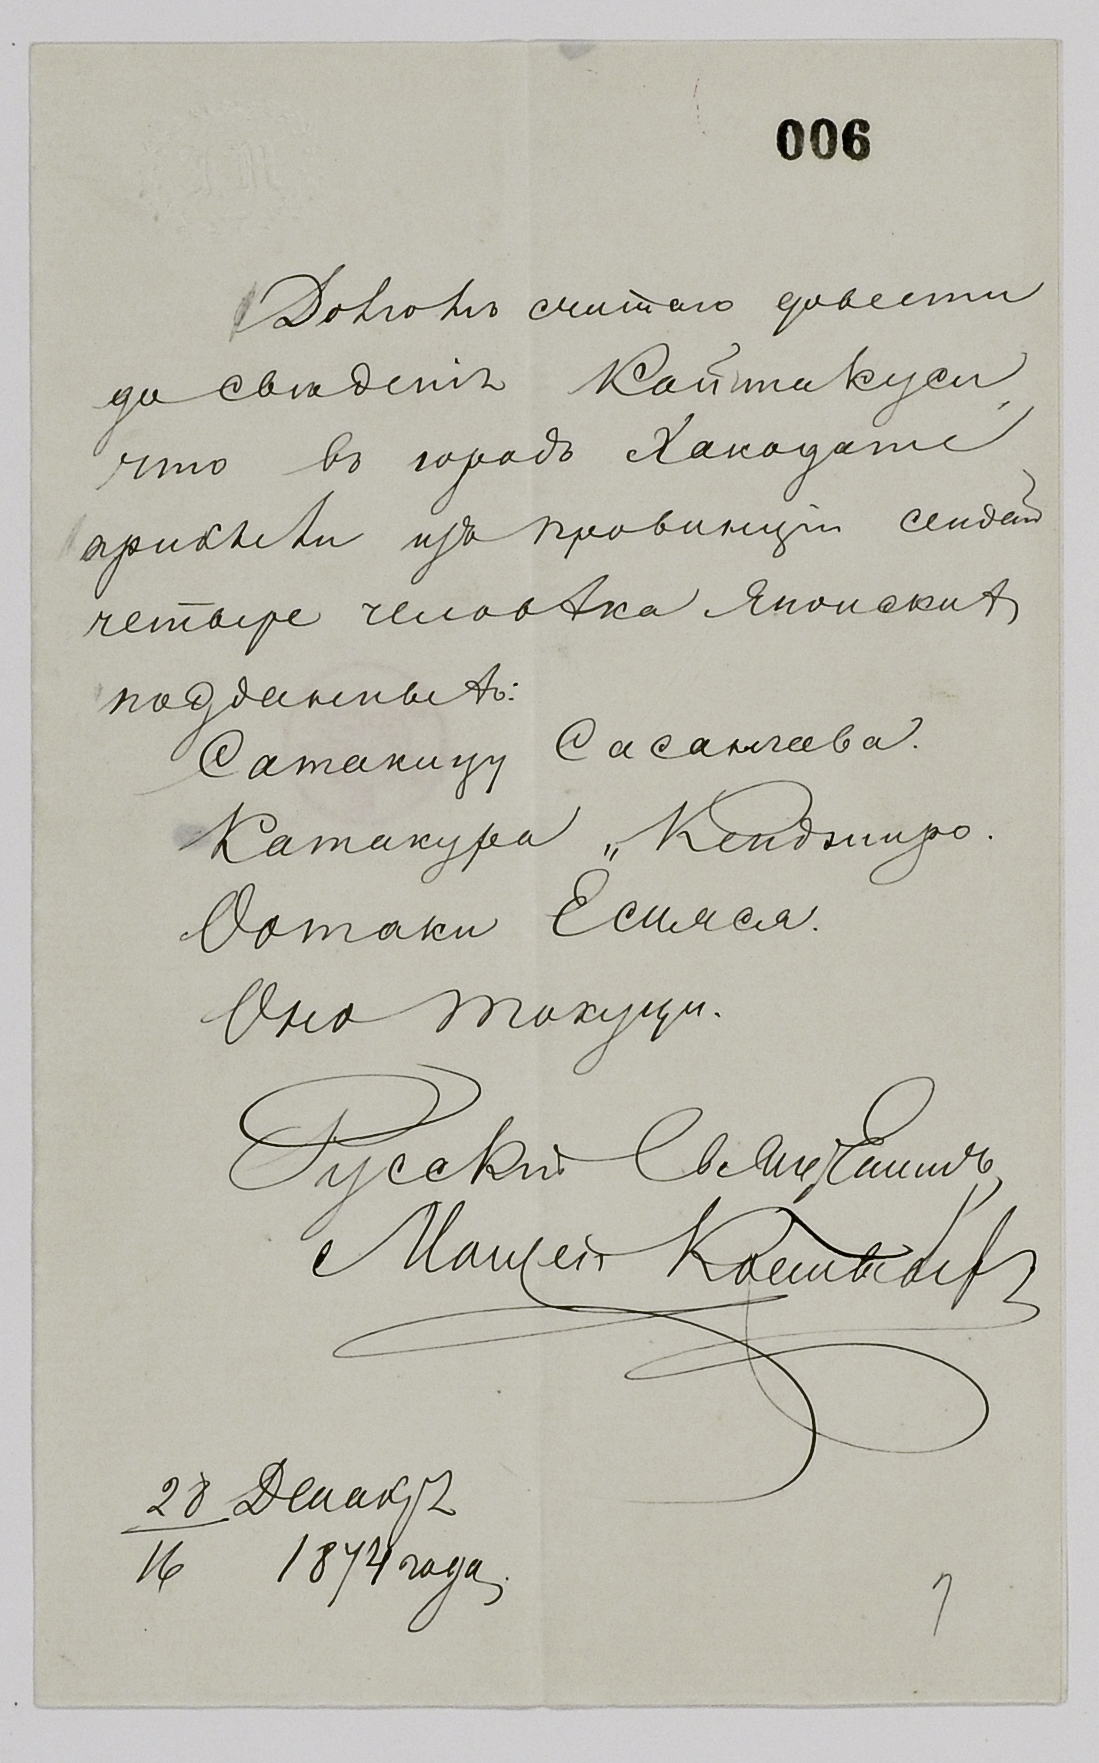 006
Долгомъ считаю довести
до сведенія Кайтакуси,
что въ городъ Хакодате
прибыли изъ провинціи сендай
четыре человѣка Японскихъ
подданныхъ:
Сатакицу
Катакура „ Кендзиро.
Оотаки Есияся.
Оно Токуци.
Русскій Священникъ
Моисей
28 Декабря
16 1874 года.
7